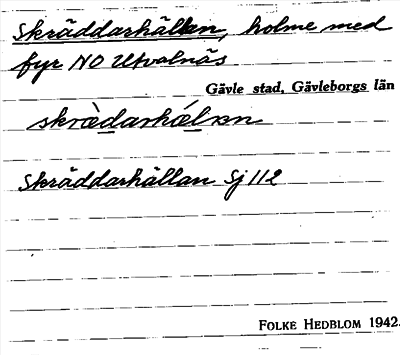 Skräddarhällan, holme med
fyr NO Utvalnäs
Gävle stad, Gävleborgs län
skrädarhälran
Skräddarhällan Sj 112
FOLKE HEDBLOM 1942.